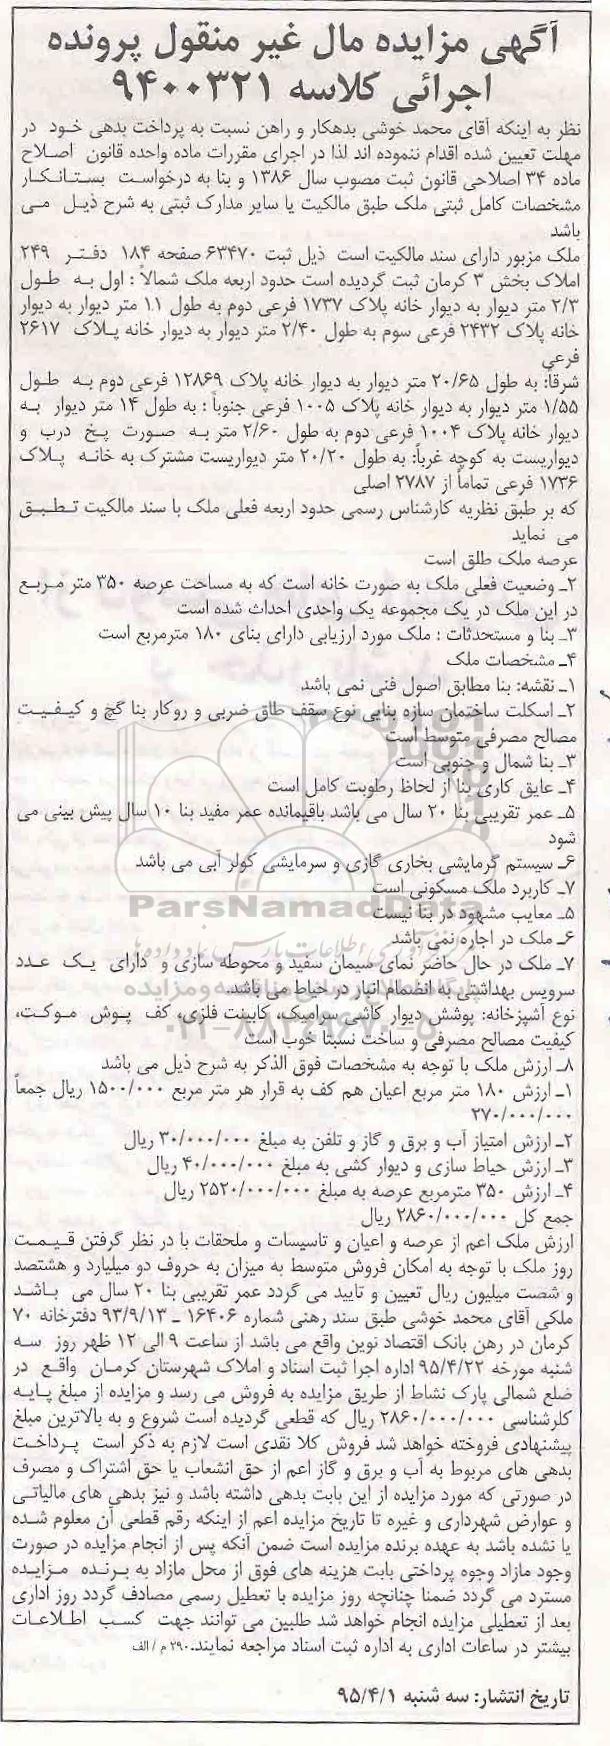 آگهی مزایده مال غیر منقول پرونده
اجرائی کلاسه ۹۴۰۰۳۲۱
نظر به اینکه آقای محمد خوشی بدهکار و راهن نسبت به پرداخت بدهی خود در
مهلت تعیین شده اقدام ننموده اند لذا در اجرای مقررات ماده واحده قانون اصلاح
ماده ۳۴ اصلاحی قانون ثبت مصوب سال ۱۳۸۶ و بنا به درخواست بستانکار
مشخصات کامل ثبتی ملک طبق مالکیت یا سایر مدارک ثبتی به شرح ذیل می
باشد
ملک مزبور دارای سند مالکیت است ذیل ثبت ۶۳۴۷۰ صفحه ۱۸۴ دفتر ۲۴۹
املاک بخش ۳ کرمان ثبت گردیده است حدود اربعه ملک شمالاً : اول به طول
۲/۳ متر دیوار به دیوار خانه پلاک ۱۷۳۷ فرعی دوم به طول ۱۱ متر دیوار به دیوار
خانه پلاک ۲۴۳۲ فرعی سوم به طول ۲/۴۰ متر دیوار به دیوار خانه پلاک ۲۶۱۷
فرعی
شرقاً: به طول ۲۰/۶۵ متر دیوار به دیوار خانه پلاک ۱۲۸۶۹ فرعی دوم به طول
۱/۵۵ متر دیوار به دیوار خانه پلاک ۱۰۰۵ فرعی جنوباً : به طول ۱۴ متر دیوار به
دیوار خانه پلاک ۱۰۰۴ فرعی دوم به طول ۲/۶۰ متر به صورت پخ درب و
دیواریست به کوچه غرباً: به طول ۲۰/۲۰ متر دیواریست مشترک به خانه پلاک
۱۷۳۶ فرعی تماماً از ۲۷۸۷ اصلی
که بر طبق نظریه کارشناس رسمی حدود اربعه فعلی ملک با سند مالکیت تطبیق
می نماید
عرصه ملک طلق است
۲ـ وضعیت فعلی ملک به صورت خانه است که به مساحت عرصه ۳۵۰ متر مربع
در این ملک در یک مجموعه یک واحدی احداث شده است
۳ـ بنا و مستحدثات : ملک مورد ارزیابی دارای بنای ۱۸۰ مترمربع است
۴ـ مشخصات ملک
۱ـ نقشه: بنا مطابق اصول فنی نمی باشد
۲ـ اسکلت ساختمان سازه بنایی نوع سقف طاق ضربی و روکار بنا گچ و کیفیت
مصالح مصرفی متوسط است
۳ـ بنا شمال و جنوبی است
۴ـ عایق کاری بنا از لحاظ رطوبت کامل است
۵ـ عمر تقریبی بنا ۲۰ سال می باشد باقیمانده عمر مفید بنا ۱۰ سال پیش بینی می
شود
۶ـ سیستم گرمایشی بخاری گازی و سرمایشی کولر آبی می باشد
۷ـ کاربرد ملک مسکونی است
۵ـ معایب مشهود در بنا نیست
ParsNamadData
۶ـ ملک در اجاره نمی باشد
۷ـ ملک در حال حاضر نمای سیمان سفید و محوطه سازی و دارای یک عدد
سرویس بهداشتی به انضمام انبار در حیاط می باشد.
نوع آشپزخانه: پوشش دیوار کاشی سرامیک، کابینت فلزی، کف پوش موکت،
۰۲۱-۸۸۳۴۹۶۷۰-۵
کیفیت مصالح مصرفی و ساخت نسبتا خوب است
۸ـ ارزش ملک با توجه به مشخصات فوق الذکر به شرح ذیل می باشد
۱ـ ارزش ۱۸۰ متر مربع اعیان هم کف به قرار هر متر مربع ۱۵۰۰/۰۰۰ ریال جمعاً
۲۷۰/۰۰۰/۰۰۰
۲ـ ارزش امتیاز آب و برق و گاز و تلفن به مبلغ ۳۰/۰۰۰/۰۰۰ ریال
۳ـ ارزش حیاط سازی و دیوار کشی به مبلغ ۴۰/۰۰۰/۰۰۰ ریال
۴ـ ارزش ۳۵۰ مترمربع عرصه به مبلغ ۲۵۲۰/۰۰۰/۰۰۰ ریال
جمع کل ۲۸۶۰/۰۰۰/۰۰۰ ریال
ارزش ملک اعم از عرصه و اعیان و تاسیسات و ملحقات با در نظر گرفتن قیمت
روز ملک با توجه به امکان فروش متوسط به میزان به حروف دو میلیارد و هشتصد
و شصت میلیون ریال تعیین و تایید می گردد عمر تقریبی بنا ۲۰ سال می باشد
ملکی آقای محمد خوشی طبق سند رهنی شماره ۱۶۴۰۶ ـ ۹۳/۹/۱۳ دفترخانه ۷۰
کرمان در رهن بانک اقتصاد نوین واقع می باشد از ساعت ۹ الی ۱۲ ظهر روز سه
شنبه مورخه ۹۵/۴/۲۲ اداره اجرا ثبت اسناد و املاک شهرستان کرمان واقع در
ضلع شمالی پارک نشاط از طریق مزایده به فروش می رسد و مزایده از مبلغ پایه
کارشناسی ۲۸۶۰/۰۰۰/۰۰۰ ریال که قطعی گردیده است شروع و به بالاترین مبلغ
پیشنهادی فروخته خواهد شد فروش کلا نقدی است لازم به ذکر است پرداخت
بدهی های مربوط به آب و برق و گاز اعم از حق انشعاب یا حق اشتراک و مصرف
در صورتی که مورد مزایده از این بابت بدهی داشته باشد و نیز بدهی های مالیاتی
و عوارض شهرداری و غیره تا تاریخ مزایده اعم از اینکه رقم قطعی آن معلوم شده
یا نشده باشد به عهده برنده مزایده است ضمن آنکه پس از انجام مزایده در صورت
وجود مازاد وجوه پرداختی بابت هزینه های فوق از محل مازاد به برنده مزایده
مسترد می گردد ضمنا چنانچه روز مزایده با تعطیل رسمی مصادف گردد روز اداری
بعد از تعطیلی مزایده انجام خواهد شد طلبین می توانند جهت کسب اطلاعات
بیشتر در ساعات اداری به اداره ثبت اسناد مراجعه نمایند.۲۹۰ م / الف
تاریخ انتشار: سه شنبه ۹۵/۴/۱